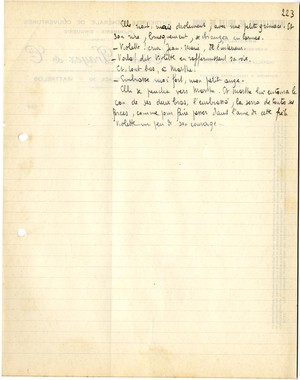 223
Elle riait, mais drôlement, avec une petite grimace. Et
son rire, brusquement, se changea en larmes.
- Violette ! cria Jean-Marie, de l'intérieur.
- Voilà ! dit Violette en raffermissant sa voix.
Et, tout bas, à Marthe :
- Embrasse-moi fort, mon petit ange.
Elle se pencha vers Marthe. Et Marthe lui entoura le
cou de ses deux bras, l'embrassa, la serra de toutes ses
forces, comme pour faire passer dans l'âme de cette
Violette un peu de son courage.